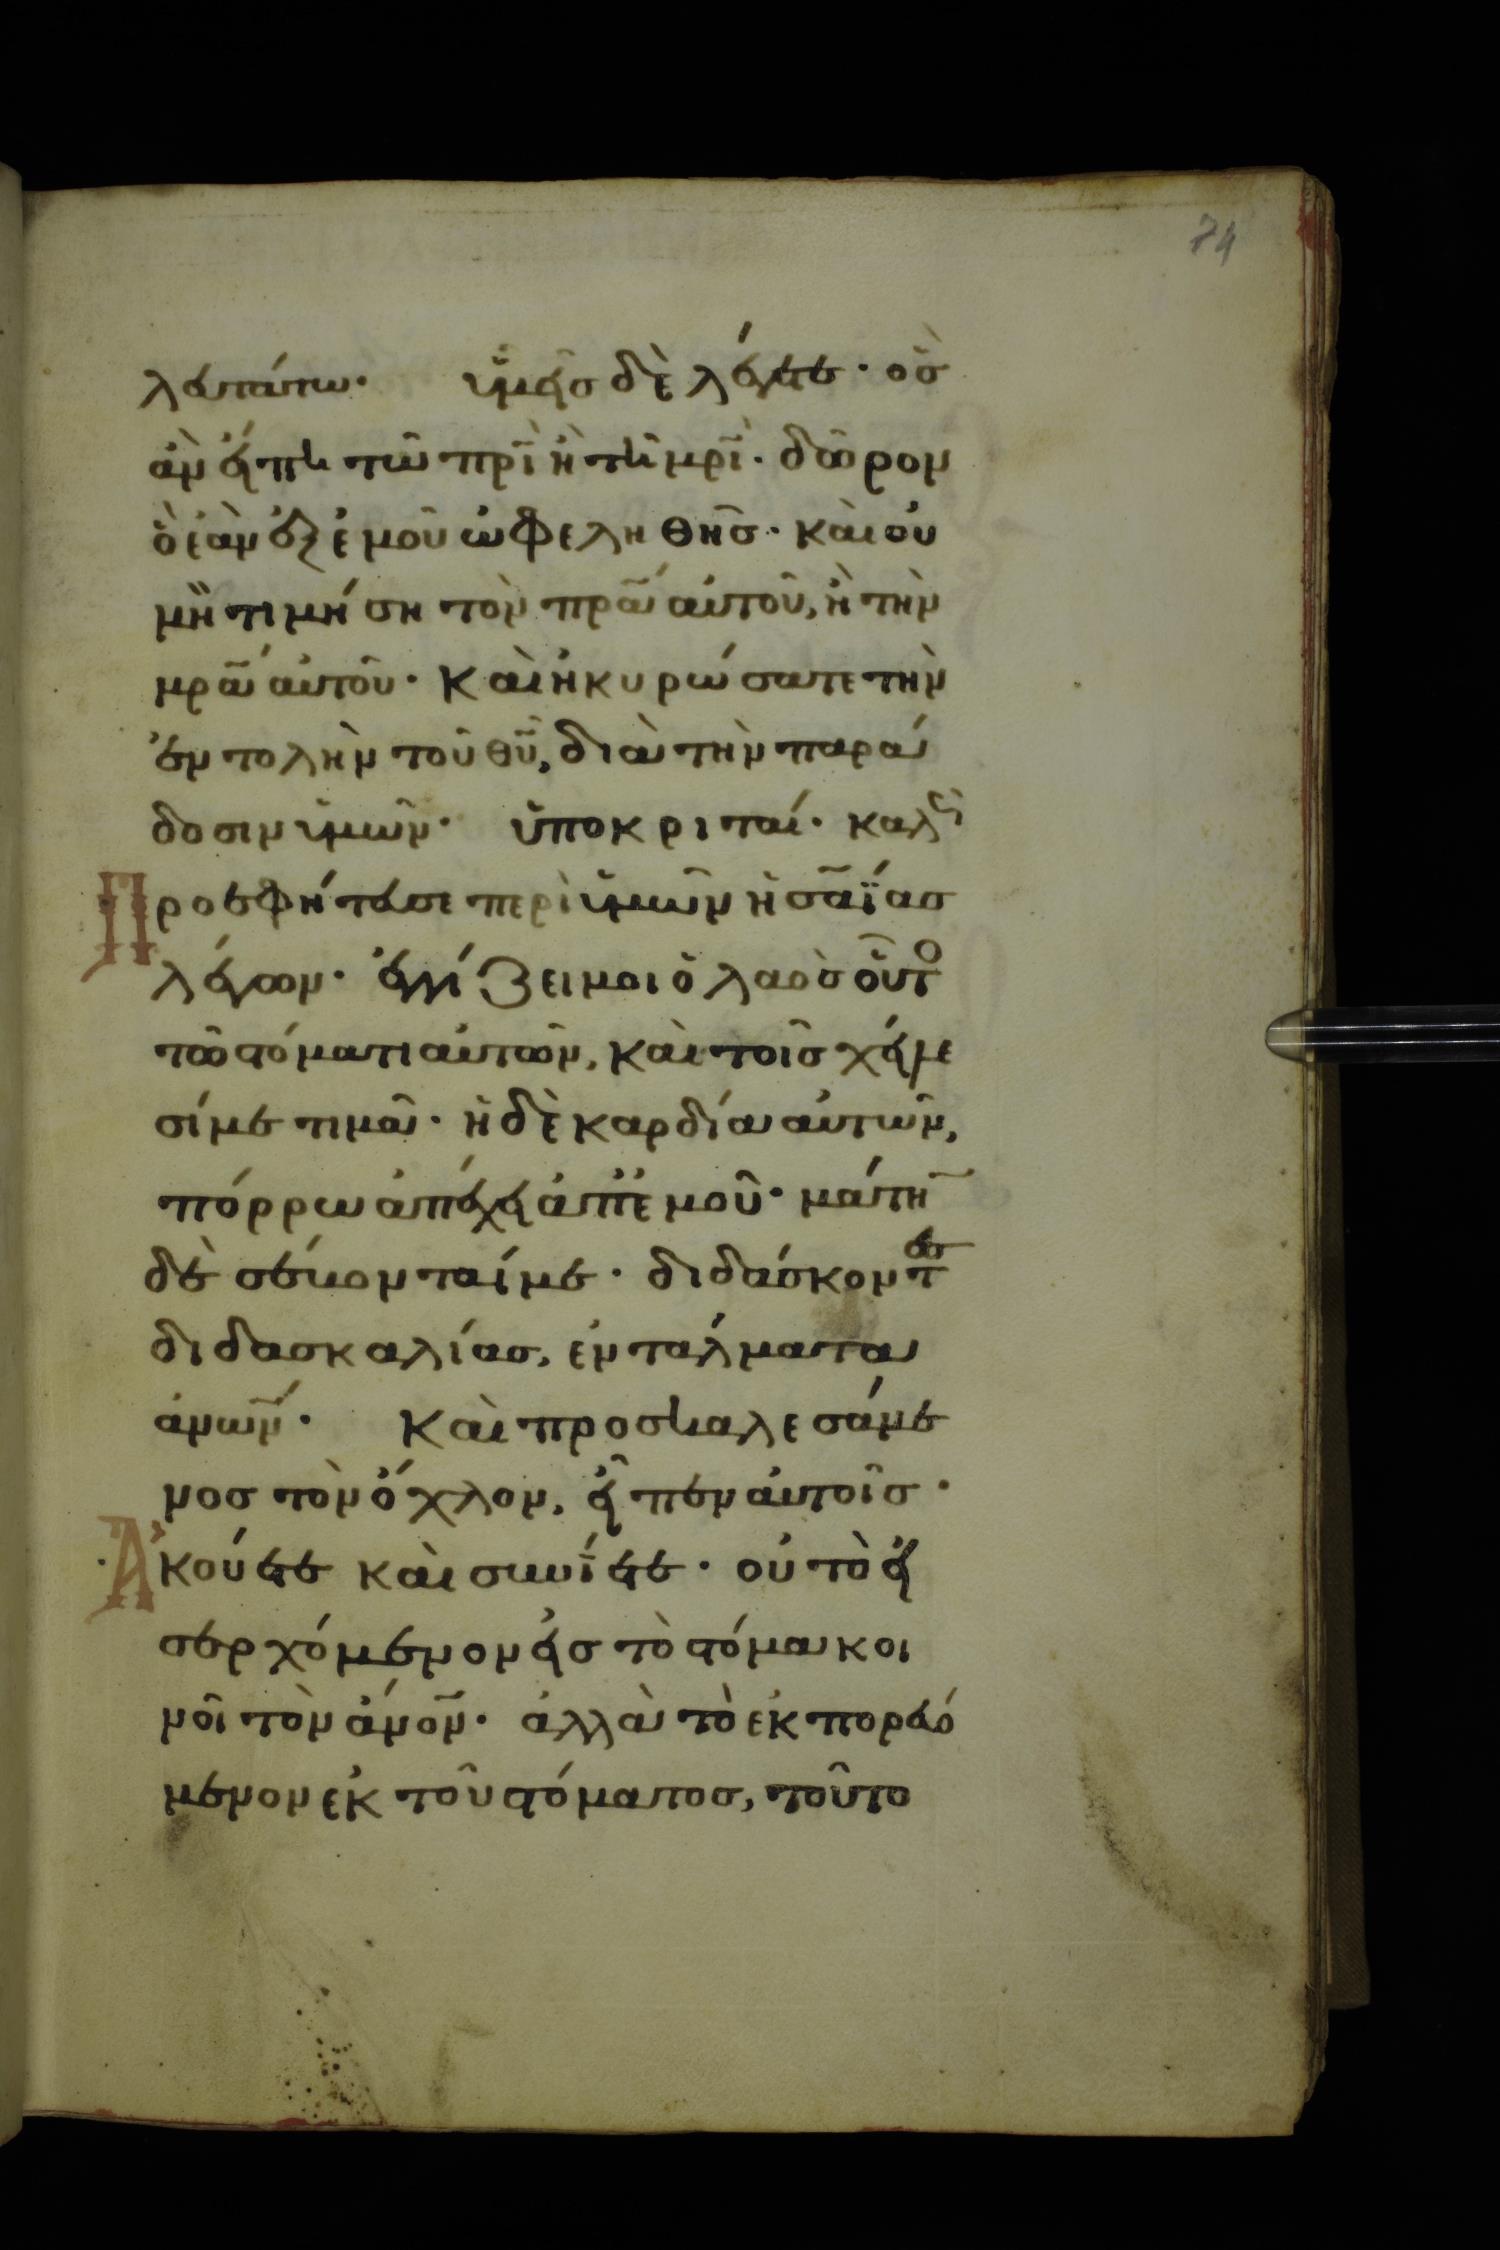 74
λευτάτω· ὑμεῖς δὲ λέγετε· ὃς
ἂν εἴπη τῶ πρὶ ἢ τῆ μρὶ· δῶρον
ὃ ἐὰν ἐξ ἐμοῦ ὠφεληθῆς· καὶ οὐ
μὴ τιμήση τὸν πρα αὐτοῦ, ἢ τὴν
μρα αὐτοῦ· καὶ ἠκυρώσατε τὴν
ἐντολὴν τοῦ θυ, διὰ τὴν παρά
δοσιν ὑμῶν· ὑποκριταί· καλῶς
Προεφήτευσε περὶ ὑμῶν ἡσαΐας
λέγων· ἐγγίζει μοι ὁ λαὸς οὗτο
τῶ στόματι αὐτῶν, καὶ τοῖς χείλε
σί με τιμᾶ· ἡ δὲ καρδία αὐτῶν,
πόρρω ἀπέχει ἀπ' ἐμοῦ· μάτη
δὲ σέβονταί με· διδάσκοντες
διδασκαλίας, ἐντάλματα
ἀνων· Καὶ προσκαλεσάμε
νος τὸν ὄχλον, εἶπεν αὐτοῖς·
Ἀκούετε καὶ συνίετε· οὐ τὸ εἰ
σερχόμενον εἰς τὸ στόμα κοι
νοῖ τὸν ἀνον· ἀλλὰ τὸ ἐκπορευό
μενον ἐκ τοῦ στόματος, τοῦτο